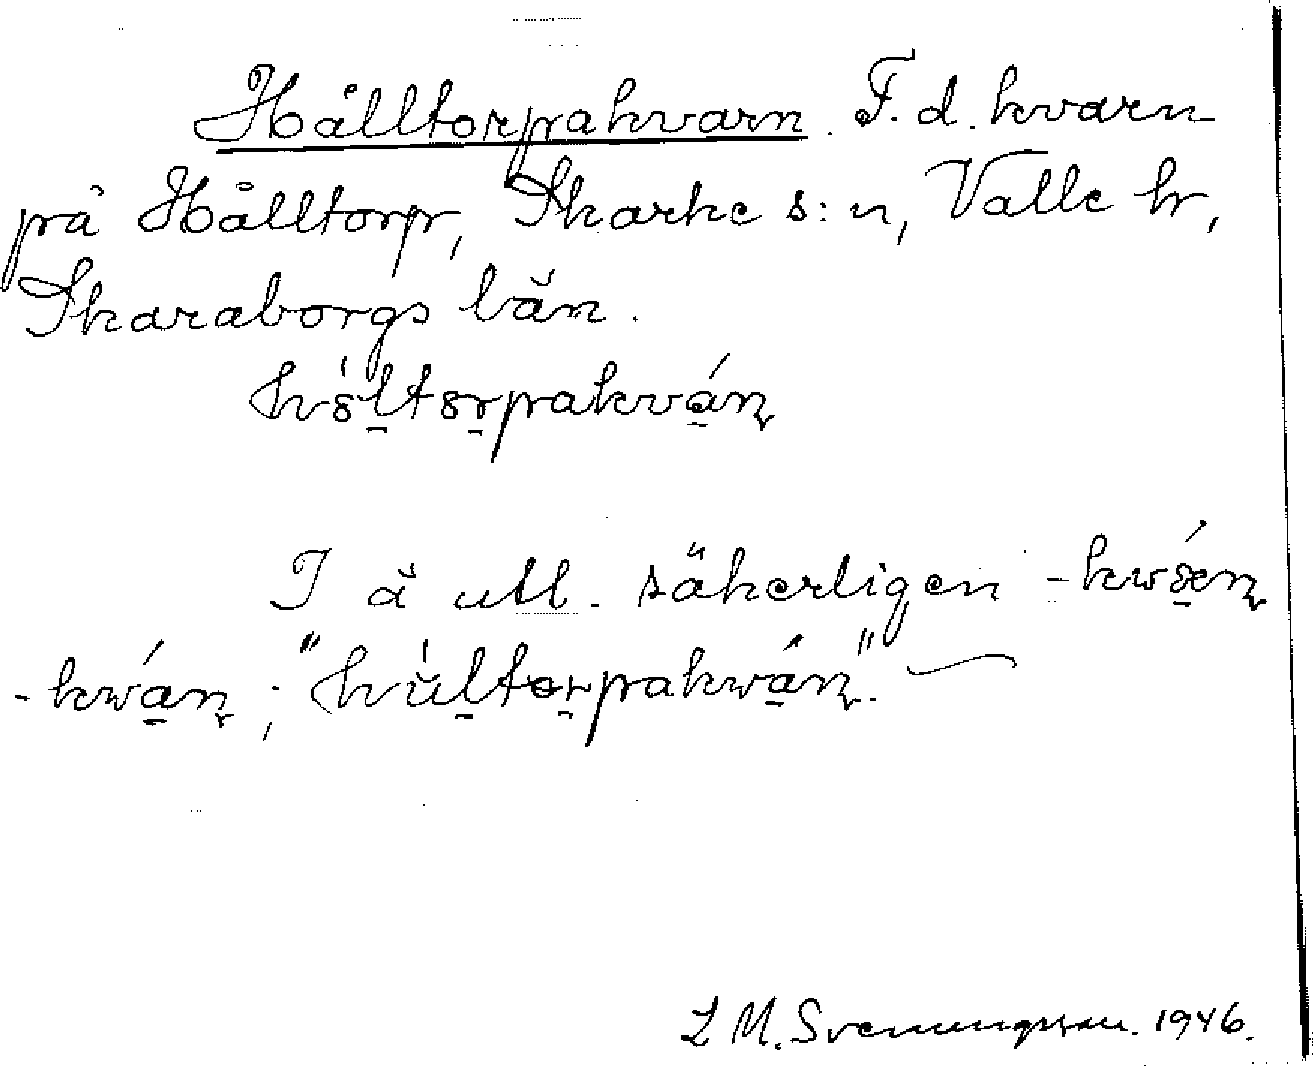 Hålltorpakvarn. F.d. kvarn
på Hålltorp, Skarke s:n, Valle hr,
Skaraborgs län.
hó̀ltorpakván
I ä utt. säkerligen -kwón
-kwán; "hùltorpakwán".
L M. Svenungsson. 1946.